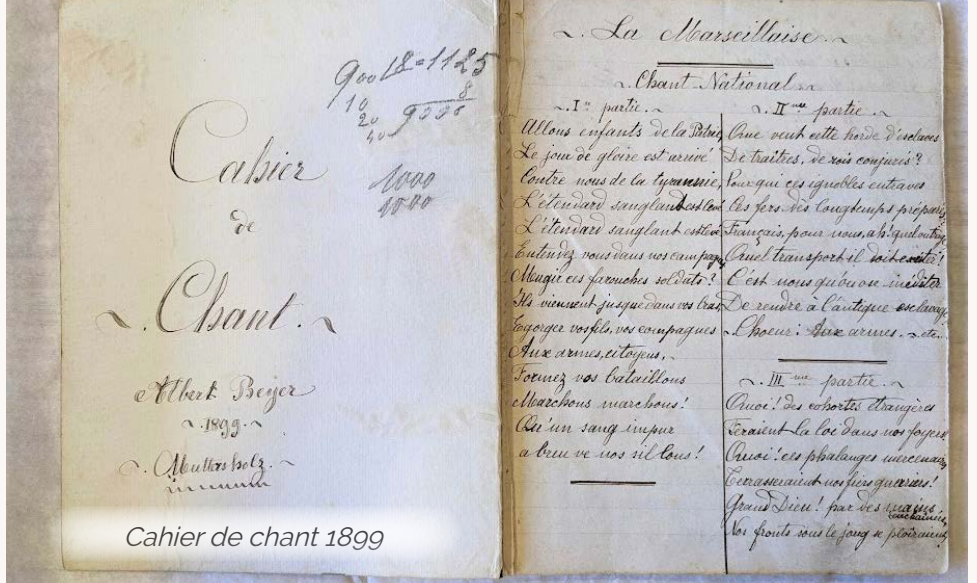 900 18=1125
10 8
20 9000
40
Cahier
de
Chant.
1000
1000
Albert Beyer
1899.
Muttersholz.
Cahier de chant 1899
La Marseillaise
Chant National
Iʳᵉ partie.
Allons enfants de la Patrie,
Le jour de gloire est arrivé
Contre nous de la tyrannie,
L'étendard sanglant est levé
L'étendard sanglant est levé
Entendez vous dans nos campagnes
Mugir ces farouches soldats?
Ils viennent jusque dans vos bras,
Egorger vos fils, vos compagnes
Aux armes, citoyens,
Formez vos bataillons
Marchons marchons!
Qu'un sang impur
abreuve nos sillons!
IIᵐᵉ partie.
Que veut cette horde d'esclaves
De traîtres, de rois conjurés?
Pour qui ces ignobles entraves
Ces fers dès longtemps préparés,
Français, pour nous, ah! quel outrage
Quel transport il doit exciter!
C'est nous qu'on ose méditer
De rendre à l'antique esclavage
Choeur: Aux armes. etc.
IIIᵐᵉ partie.
Quoi! des cohortes étrangères
Feraient la loi dans nos foyers
Quoi! ces phalanges mercenaires
Terrasseraient nos fiers guerriers!
Grand Dieu! par des mains
enchaînées,
Nos fronts sous le joug se ploieraient